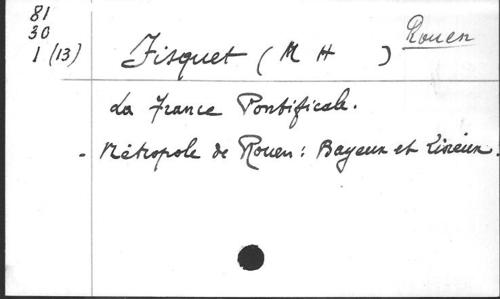 81
30
1 (13)
Fisquet (M H )
Rouen
La France Pontificale.
- Métropole de Rouen : Bayeux et Lisieux.